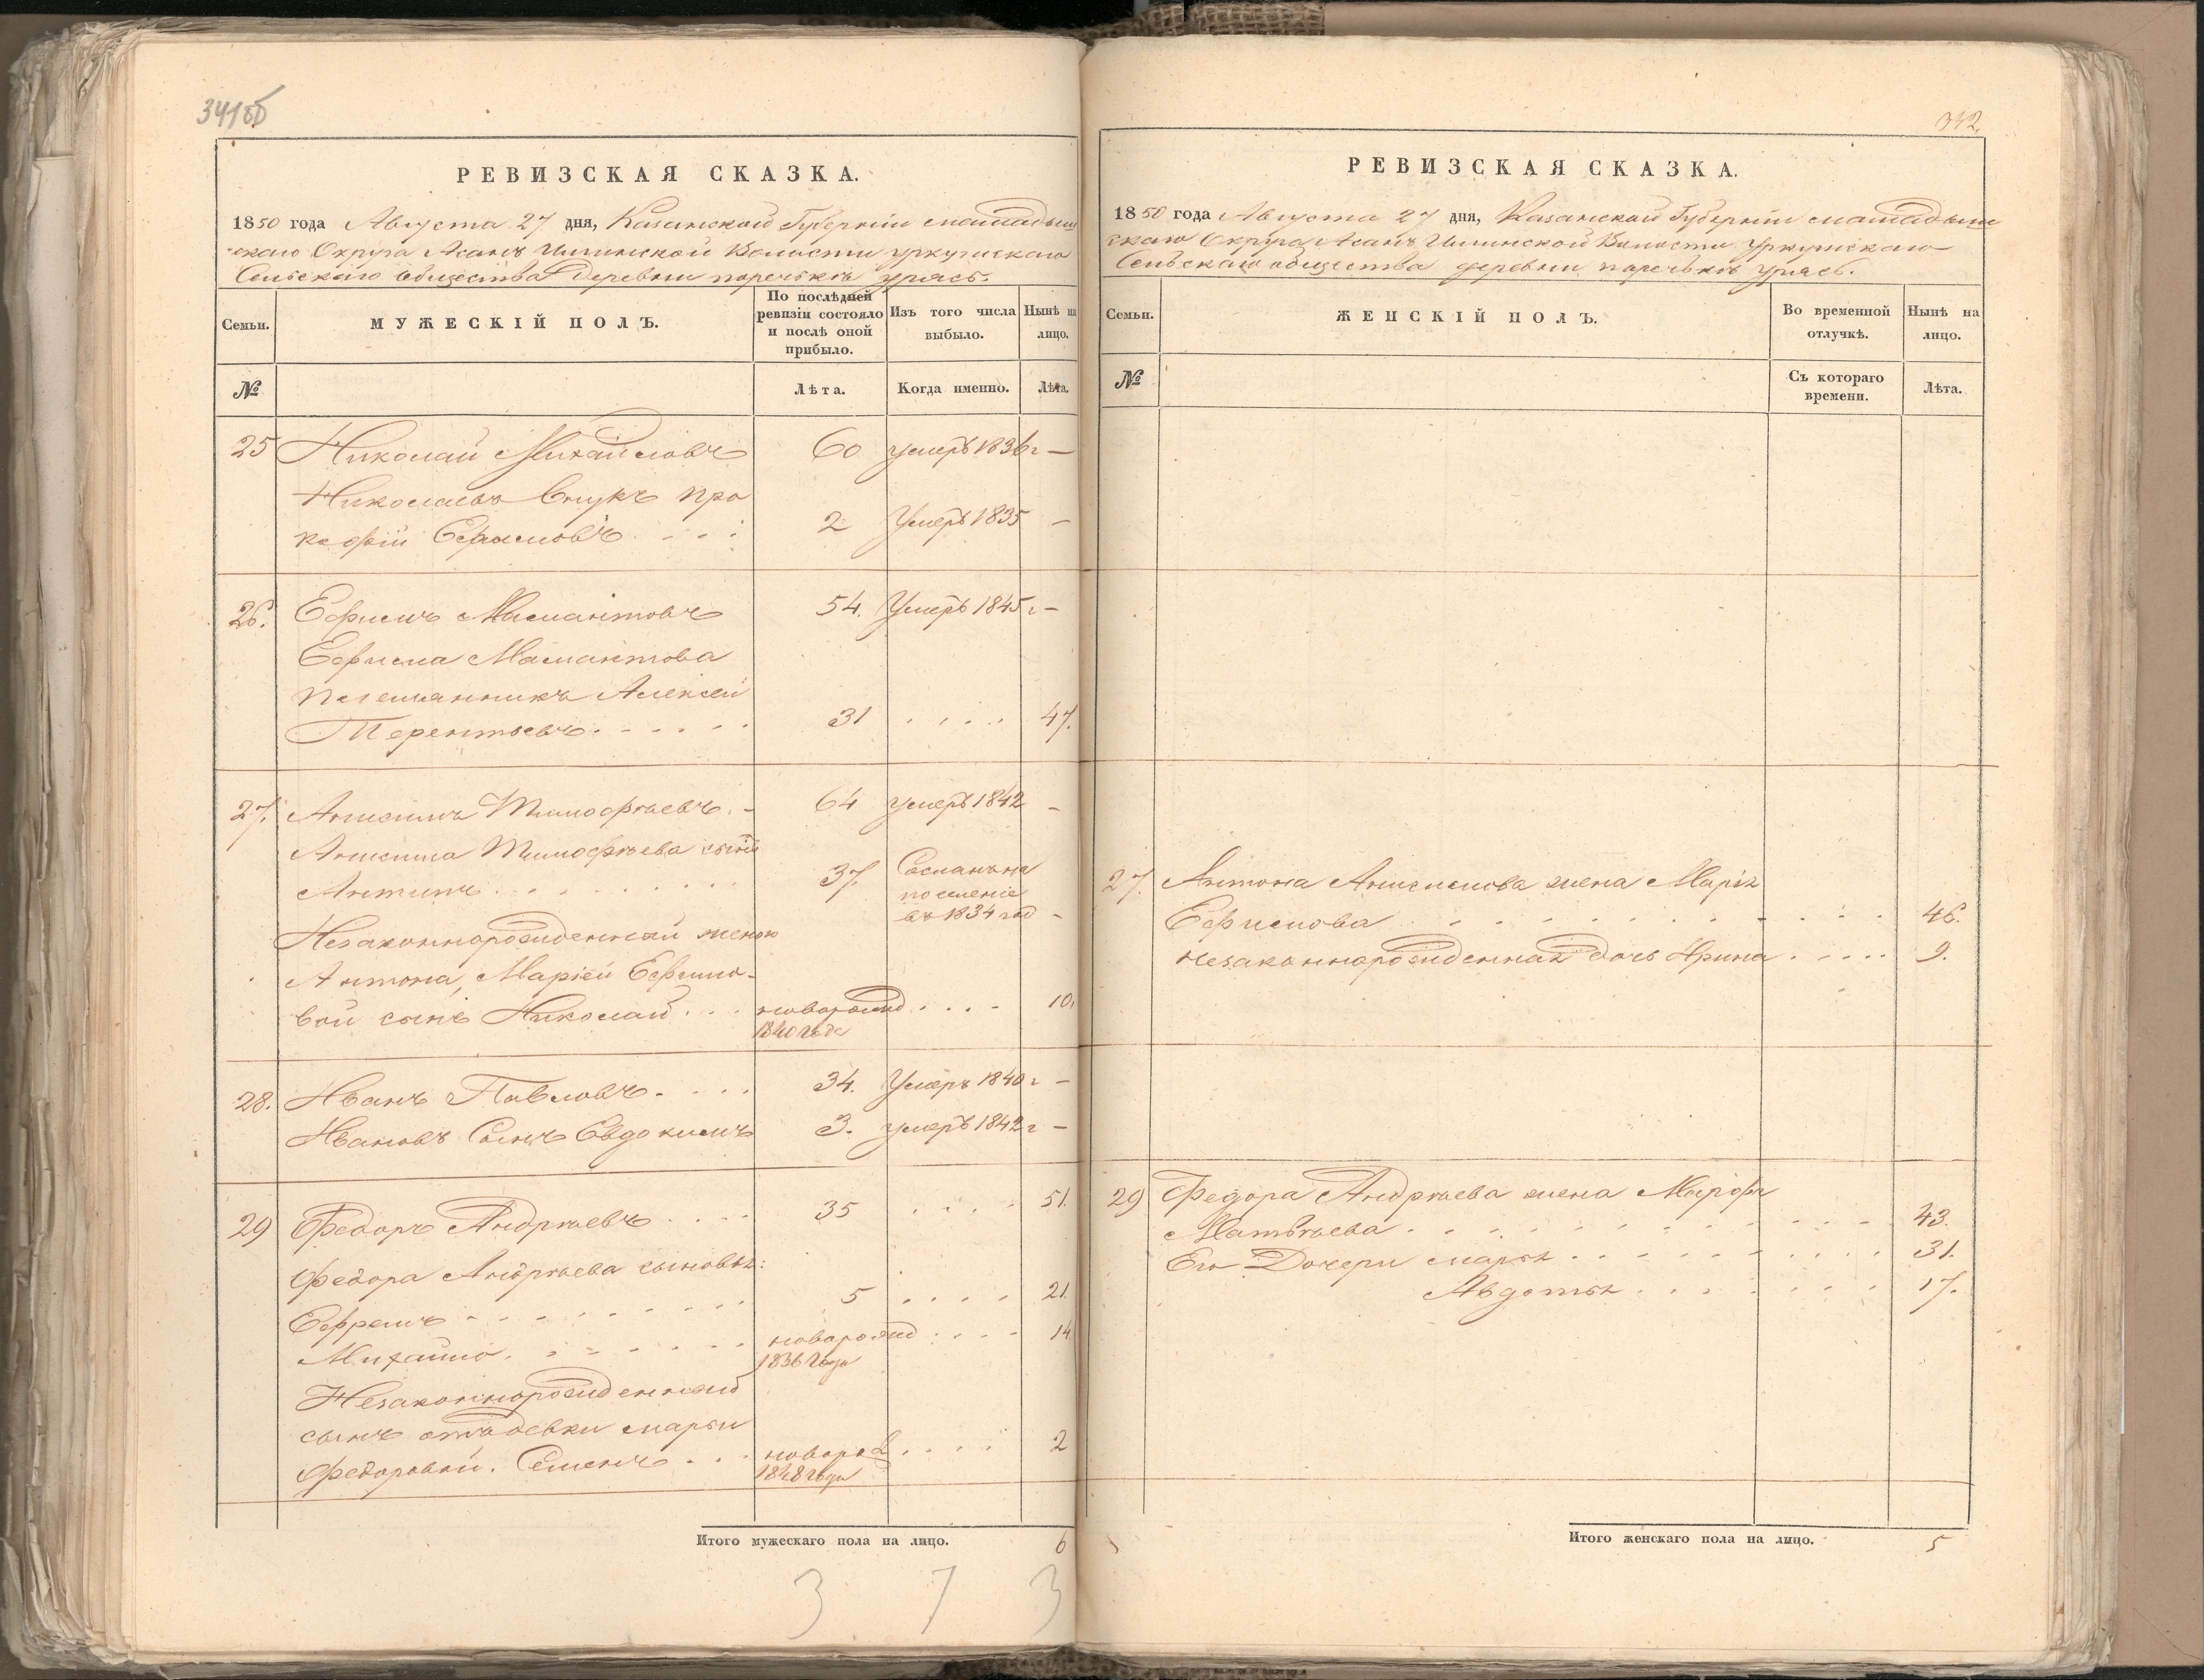 341об
РЕВИЗСКАЯ СКАЗКА.
1850 года Августа 27 дня, Казанской Губернiи мамадыш
скаго Округа Асанъ Илинской Волости уркушскаго
Сельскаго общества деревни поречьковъ урясь.
Семьи.
МУЖЕСКІЙ ПОЛЪ.
По послѣдней ревизіи состояло и послѣ оной прибыло.
Изъ того числа выбыло.
Нынѣ на лицо.
№
Лѣта.
Когда именно.
Лѣта.
25 Николай Михайловъ 60 умеръ 1836г —
Николаевъ Внукъ про
кофiй Ефимовъ 2 Умеръ 1835 —
26. Ефимъ Мамантовъ 54. Умеръ 1845г —
Ефима Мамантова
племянникъ Алексей
Терентьевъ 31 47.
27. Анисимъ Тимофѣевъ 64 умеръ 1842 —
Анисима Тимофѣева сынъ
Антипъ 37. Сосланъ на
поселенiе
въ 1834 год —
Незаконнорожденный женою
Антона, Марiей Ефимо-
вой сынъ Николай новорожд 10.
1840 года
28. Иванъ Павловъ 34. Умеръ 1840г —
Ивановъ Сынъ Евдокимъ 3. умеръ 1842г —
29 Федоръ Андрѣевъ 35 51.
Федора Андрѣева сыновья:
Ефремъ 5 21.
Михайло новорожд 14
1836 года
Незаконнорожденный
сынъ отъ девки марьи
Федоровой. Семенъ новорож 2
1848 года
Итого мужескаго пола на лицо. 6
3 7 3
342.
РЕВИЗСКАЯ СКАЗКА.
1850 года Августа 27 дня, Казанской Губернiи мамадыш
скаго Округа Асанъ Илинской Волости Уркушскаго
Сельскаго общества деревни поречьковъ урясь.
Семьи.
ЖЕНСКІЙ ПОЛЪ.
Во временной отлучкѣ.
Нынѣ на лицо.
№
Съ котораго времени.
Лѣта.
27. Антона Анисимова жена Марiя
Ефимова 46.
незаконнорожденная дочь Ирина 9.
29 Федора Андрѣева жена Марфа
Матвѣева 43.
Его Дочери марья 31.
Авдотья 17.
Итого женскаго пола на лицо. 5